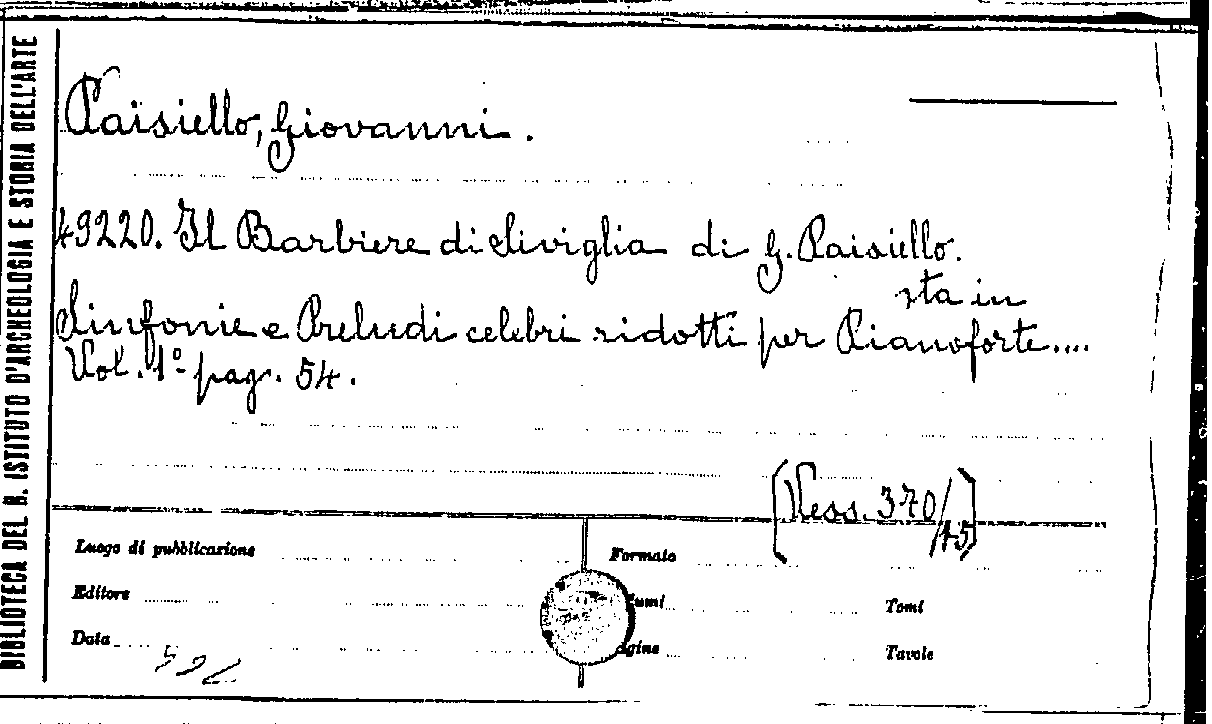 BIBLIOTECA DEL R. ISTITUTO D'ARCHEOLOGIA E STORIA DELL'ARTE
Paisiello, Giovanni.
49220. Il Barbiere di Siviglia di G. Paisiello.
sta in
Sinfonie e Preludi celebri ridotti per Pianoforte....
Vol. 1º pag. 54.
[Vess. 370/15]
Luogo di pubblicazione
Formato
Editore
umi
Tomi
Data
agine
Tavole